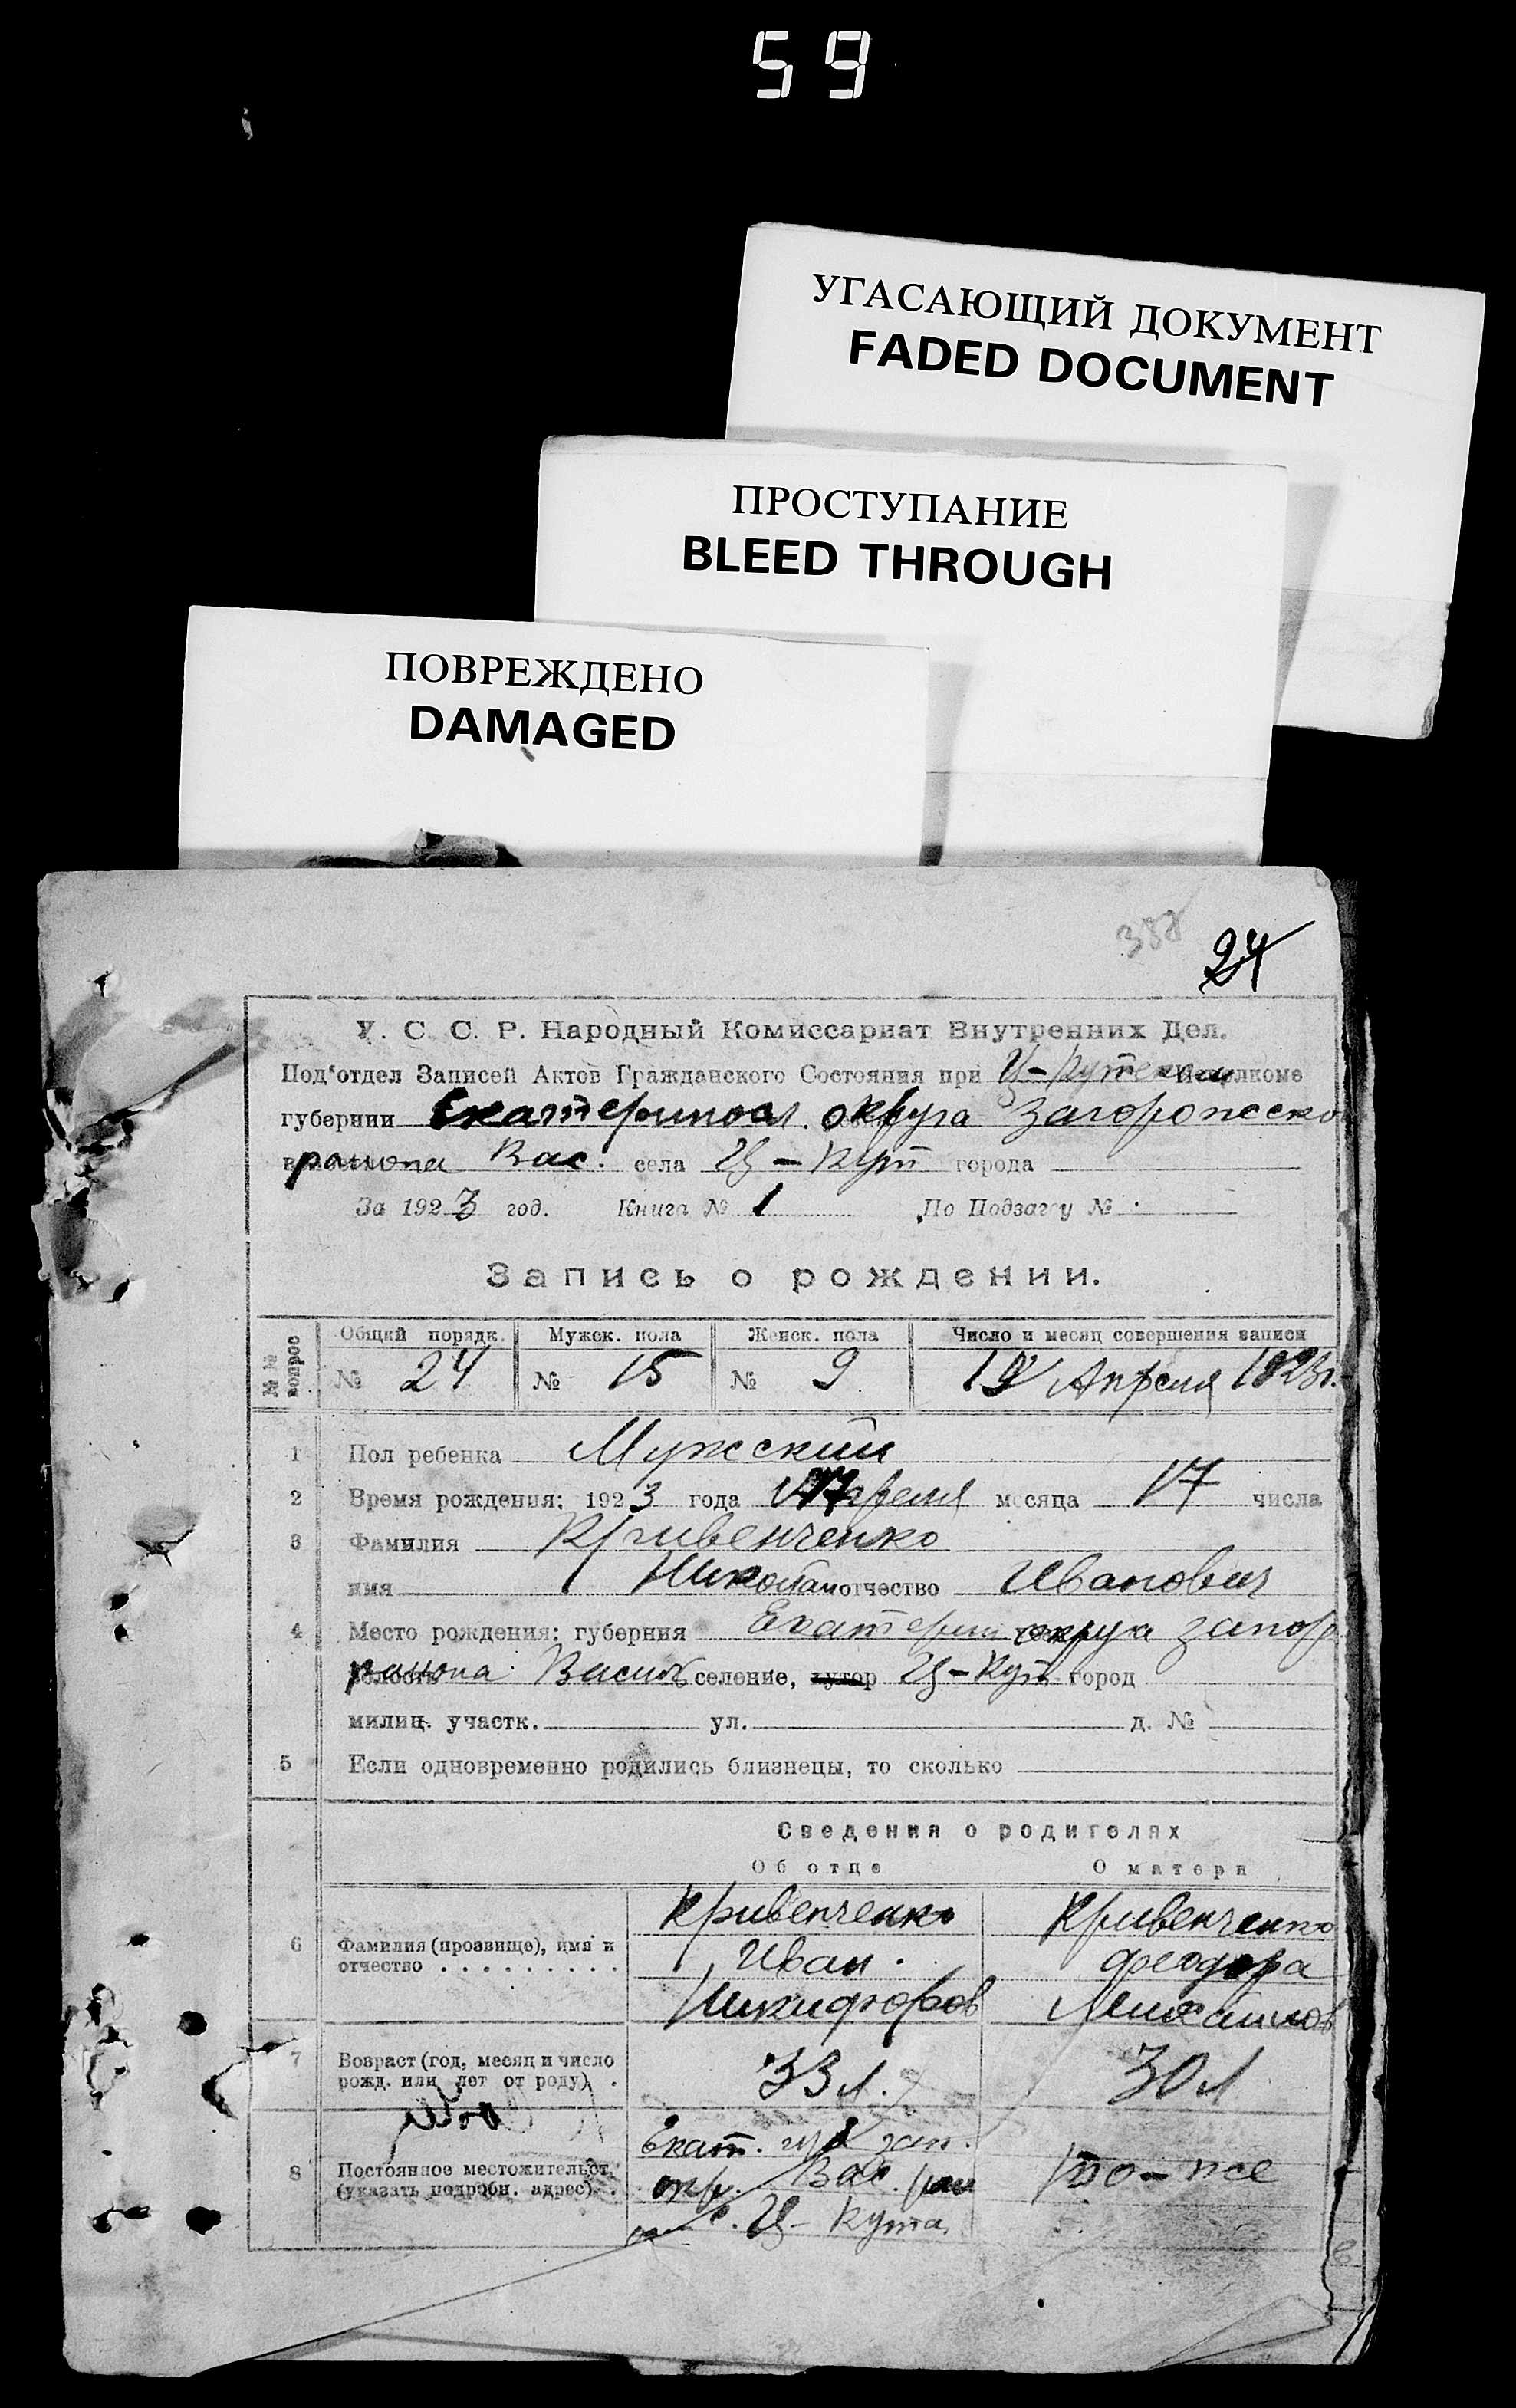 59
УГАСАЮЩИЙ ДОКУМЕНТ
FADED DOCUMENT
ПРОСТУПАНИЕ
BLEED THROUGH
ПОВРЕЖДЕНО
DAMAGED
24
У. С. С. Р. Народный Комиссариат Внутренних Дел.
Под'отдел Записей Актов Гражданского Состояния при Ц-Кутском Исполкоме
губернии Екатериносл. округа Запорожско
района Вас. села Ц-Кут города
За 1923 год. Книга № 1 По Подзагсу №
Запись о рождении.
№№ вопрос
Общий порядк. Мужск. пола Женск. пола Число и месяц совершения записи
№ 24 № 15 № 9 19 Апреля 1923г.
1 Пол ребенка Мужский
2 Время рождения: 1923 года Апреля месяца 17 числа
3 Фамилия Кривенченко
имя Николай отчество Иванович
4 Место рождения: губерния Екатерин округа Запор
района Васил селение, хутор Ц-Кут город
милиц. участк. ул. д. №
5 Если одновременно родились близнецы, то сколько
Сведения о родителях
Об отце О матери
6 Фамилия (прозвище), имя и отчество . . . . . . . . .
Кривенченко Кривенченко
Иван. Феодора
Никифоров Михайлов
7 Возраст (год, месяц и число
рожд. или лет от роду) .
33 л. 30 л
8 Постоянное местожительст.
(указать подробн. адрес) .
Екат. губ Зап.
окр. Вас. рай
с. Ц-Кута
то-же